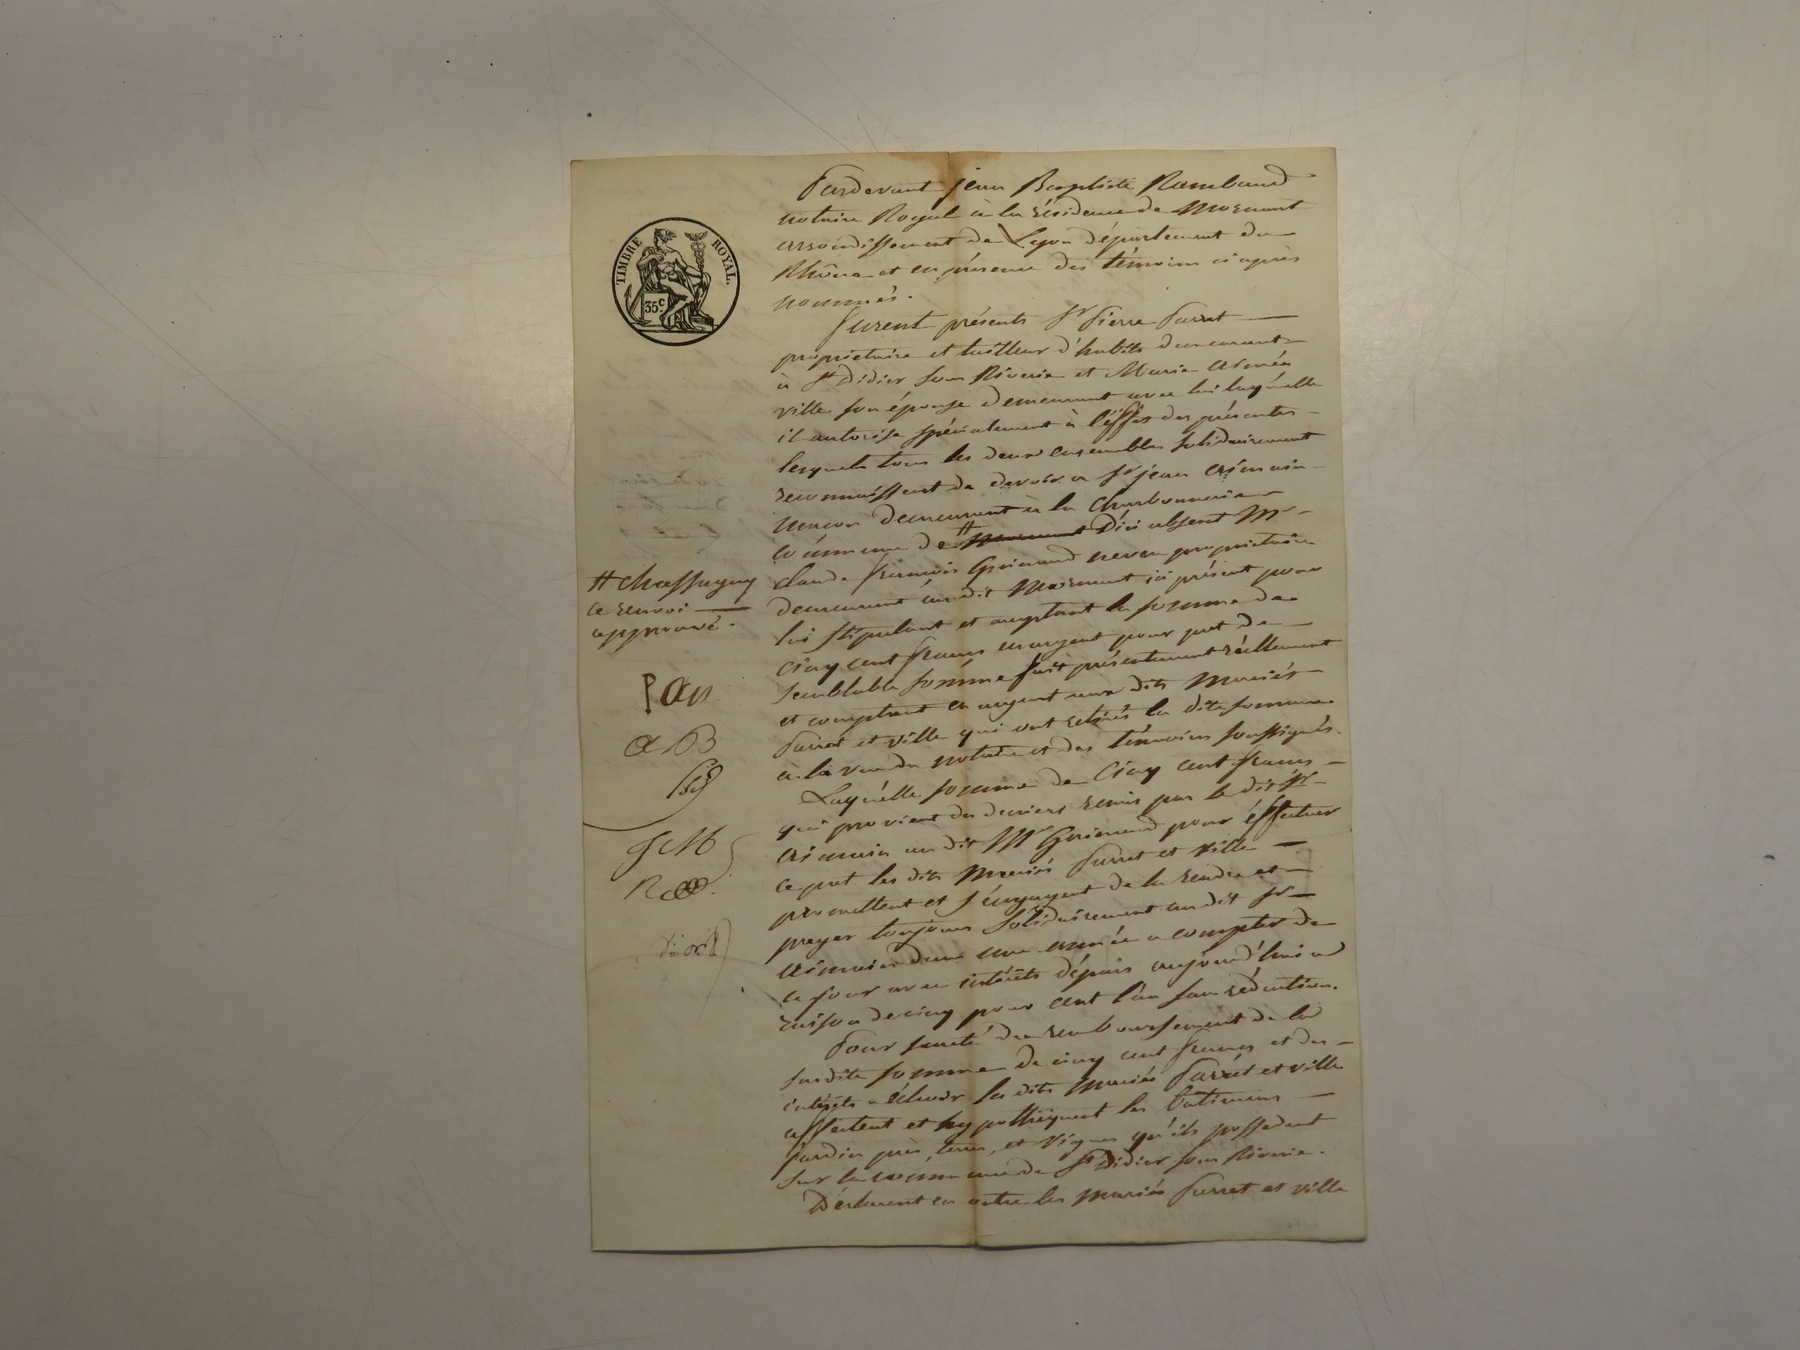 TIMBRE ROYAL.
35c.
Pardevant jean Baptiste Rambaud
notaire Royal à la résidence de Mornant
arrondissement de Lyon département du
Rhône et en présence des témoins ci après
nommés.
furent présents Sr Pierre Parret
propriétaire et tailleur d'habits demeurant
à St Didier sous Riverie et Marie Aimée
ville son épouse demeurant avec lui laquelle
il autorise spécialement à l'effet des présentes
lesquels tous les deux ensembles solidairement
reconnaissent de devoir a Sr jean
maçon demeurant à la Charbonnerie
commune de # Mornant D'ici absent Mr
claude francois neveu propriétaire
demeurant au dit Mornant ici présent pour
lui stipulant et acceptant la somme de
Cinq cent francs en argent pour prêt de
semblable somme fait présentement réellement
et comptant en argent aux dits Mariés
Parret et ville qui ont retirés la dite somme
à la vue du notaire et des témoins soussignés.
Laquelle somme de Cinq cent francs
qui provient des deniers remis par le dit Sr
au dit Mr pour éffectuer
ce pret les dits Mariés Parret et ville
promettent et s'engagent de la rendre et
payer toujours solidairement au dit Sr
dans une année a compter de
ce jour avec intérêts dépuis aujourd'hui a
raison de cinq pour cent l'an sans réduction.
Pour sureté du remboursement de la
susdite somme de cinq cent francs et des
intérêts a échoir les dits Mariés Parret et ville
affectent et hypothèquent les batimens
jardin près, terres, et vignes qu'ils possedent
sur la commune de St Didier sous Riverie.
Déclarent en outre les mariés Parret et ville
# chassagny
ce renvoi
approuvé.